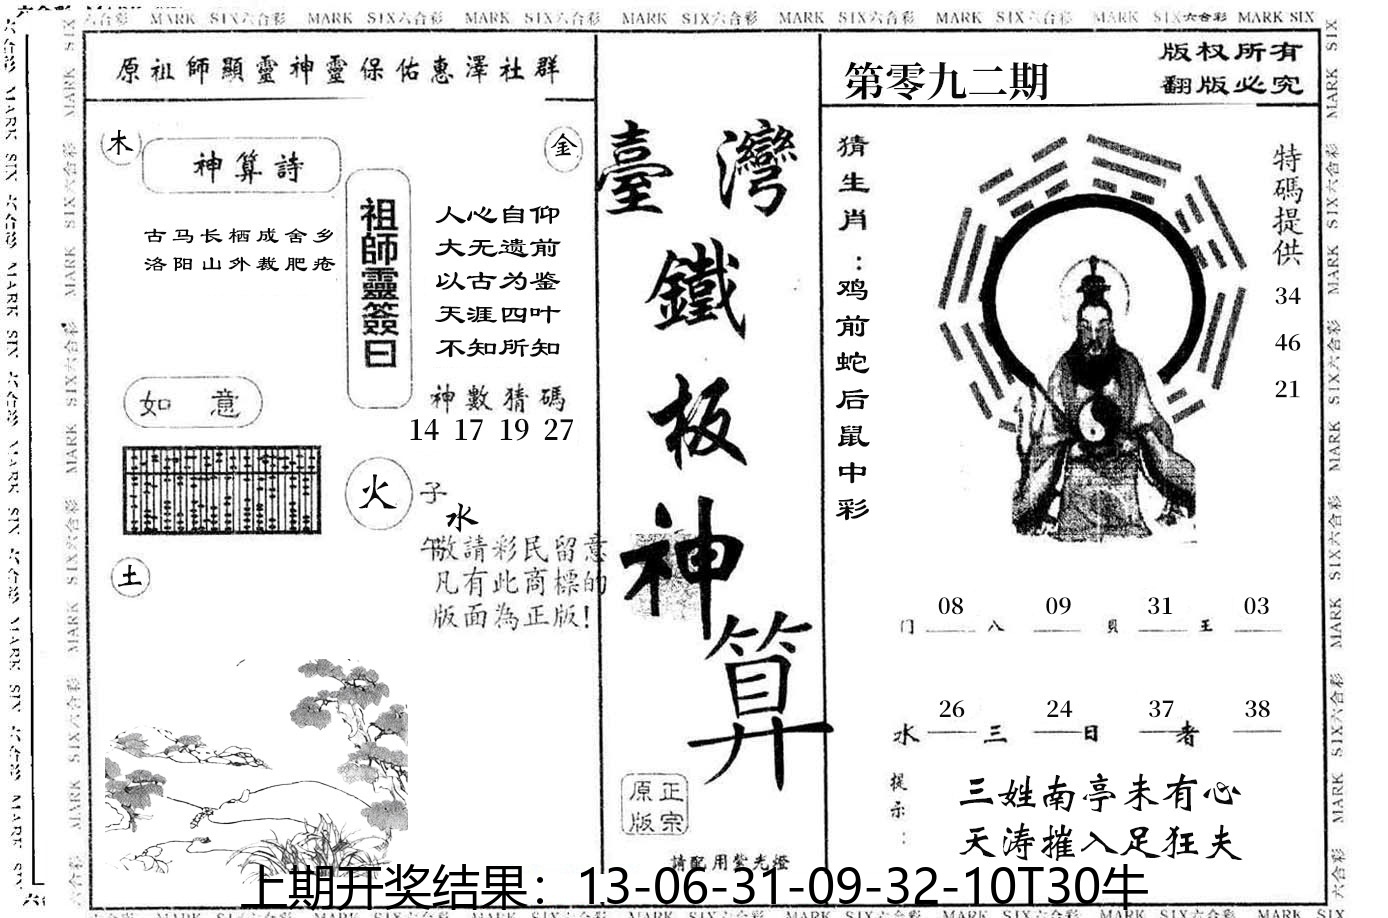 MARK SIX六合彩 MARK SIX六合彩 MARK SIX六合彩 MARK SIX六合彩 MARK SIX六合彩 MARK SIX六合彩 MARK SIX六合彩 MARK SIX
原祖師顯靈神靈保佑惠澤社群
木
神算詩
金
古马长栖成舍乡
洛阳山外裁肥疮
祖師靈簽曰
人心自仰
大无遗前
以古为鉴
天涯四叶
不知所知
如意
神數猜碼
14 17 19 27
火
子
水
午
敬請彩民留意
凡有此商標的
版面為正版!
土
臺灣
鐵
板
神
算
正宗
原版
請配用紫光燈
第零九二期
版权所有
翻版必究
猜生肖:鸡前蛇后鼠中彩
特碼提供
34
46
21
08 09 31 03
门 八 贝 王
26 24 37 38
水 三 日 者
提示:
三姓南亭未有心
天涛摧入足狂夫
上期开奖结果：13-06-31-09-32-10T30牛